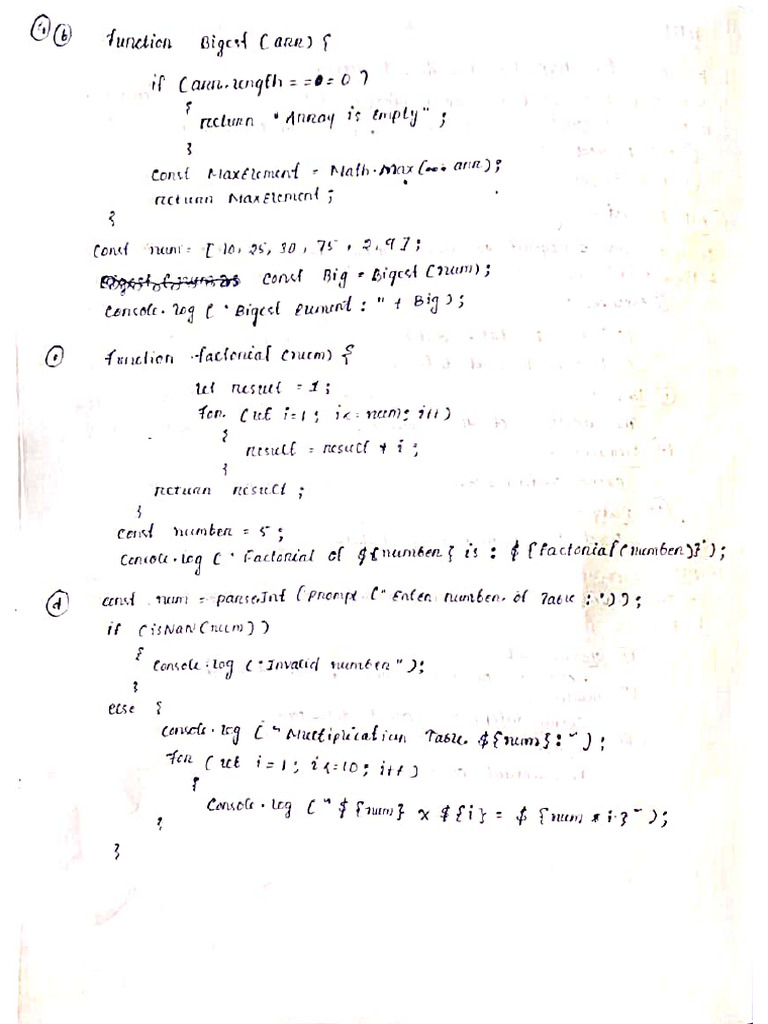 4) (b) function Bigest (arr) {
if (arr.length === 0)
{
return "Array is empty" ;
}
const MaxElement = Math.max(... arr);
return MaxElement ;
}
const num = [10, 25, 30, 75, 2, 9];
const Big = Bigest (num);
console.log ( " Bigest element : " + Big );
(c) function factorial (num) {
let result = 1;
for (let i=1 ; i<= num; i++)
{
result = result * i ;
}
return result ;
}
const number = 5 ;
console.log ( ` Factorial of ${number} is : ${factorial(number)}`);
(d) const num = parseInt (prompt (" Enter number of Table : "));
if (isNaN(num))
{
console.log ("Invalid number");
}
else {
console.log (` Multiplication Table ${num} : `);
for (let i = 1 ; i<=10 ; i++)
{
console.log (` ${num} x ${i} = ${num * i} `);
}
}